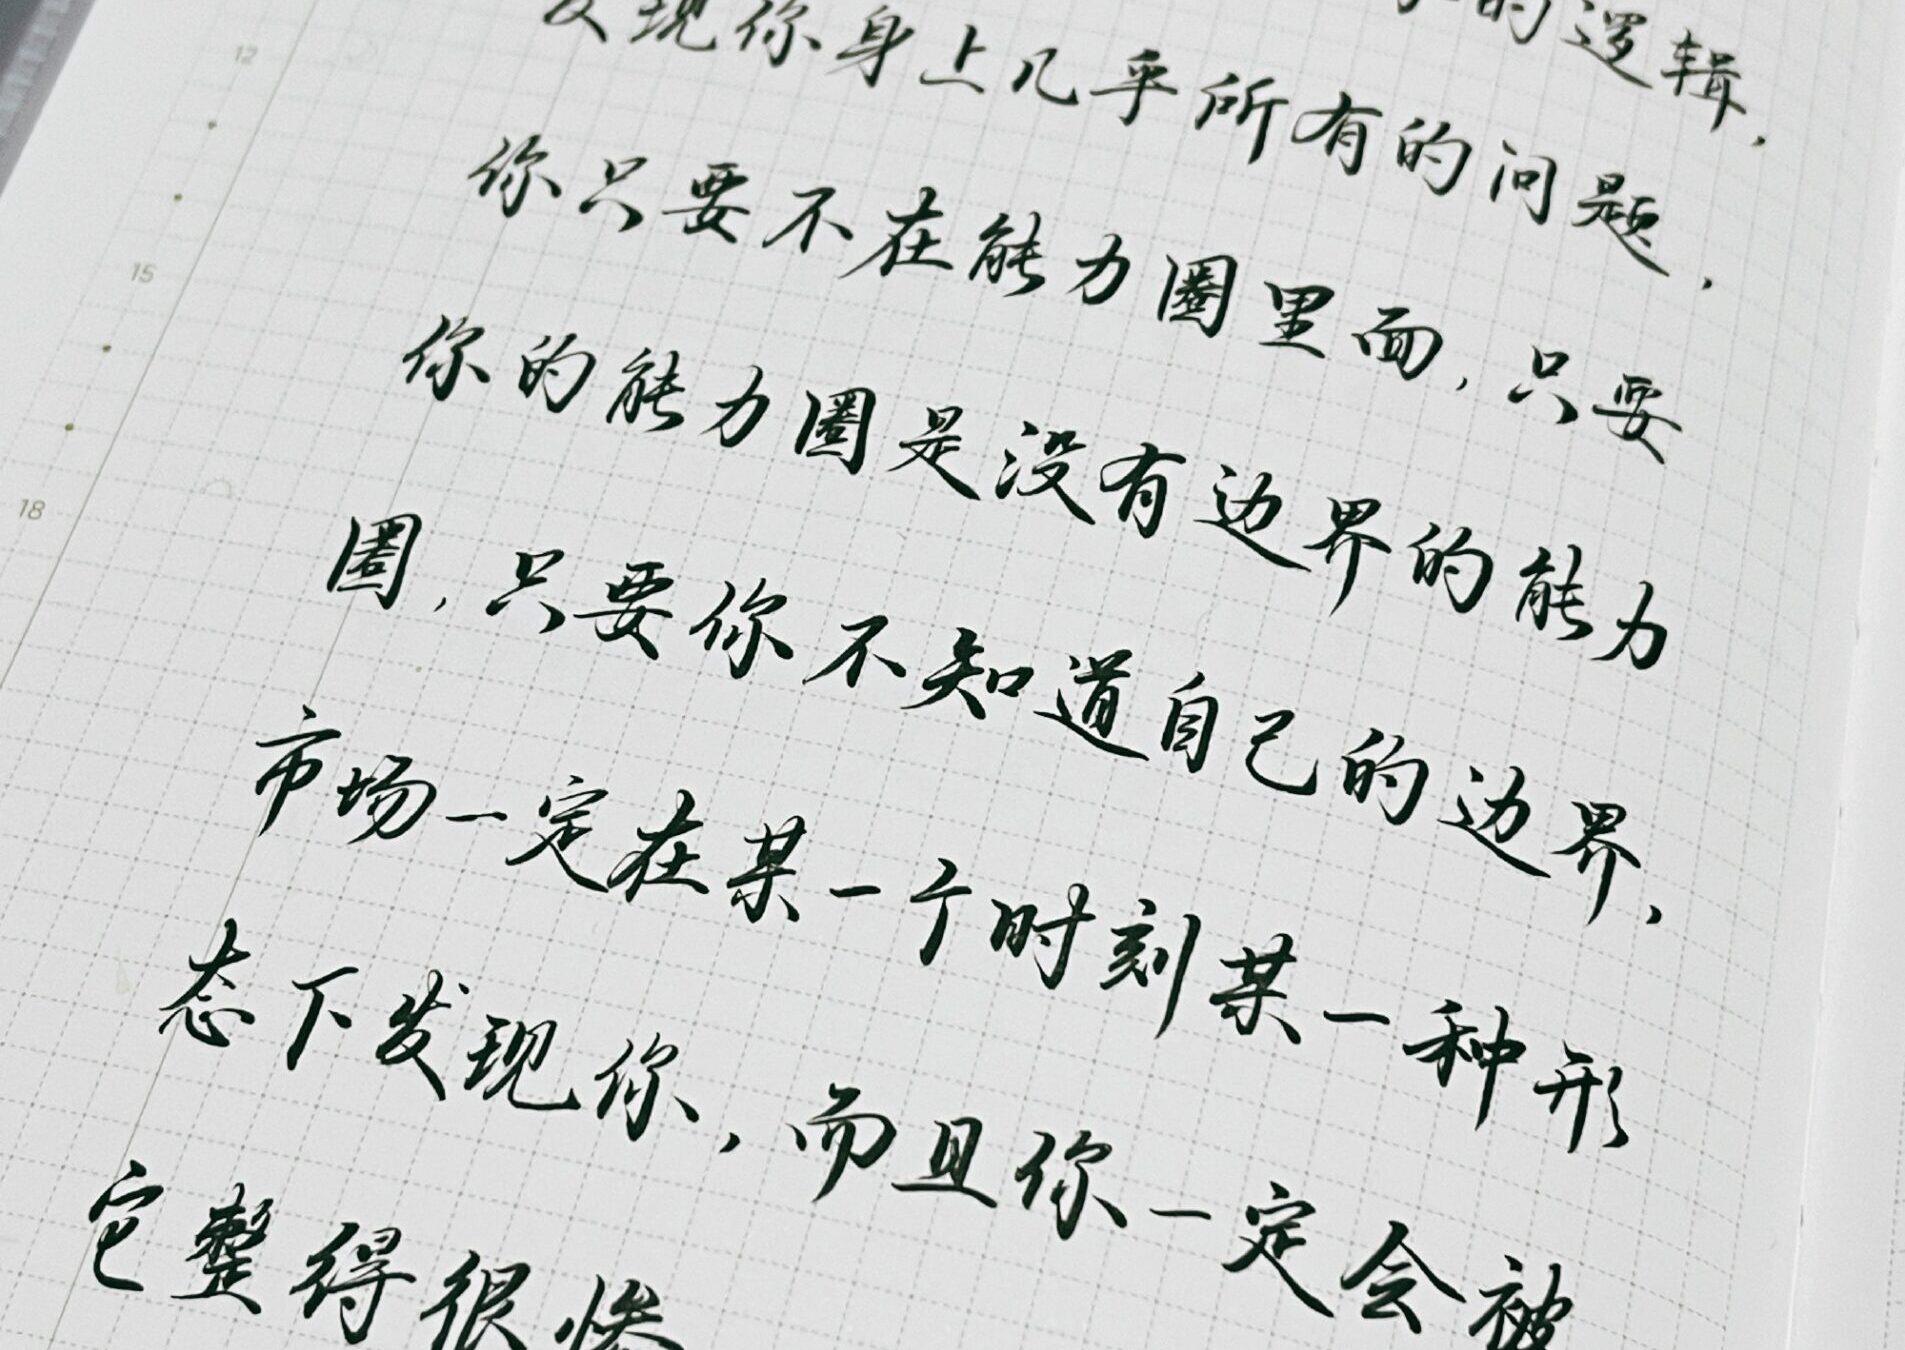 的逻辑,
发现你身上几乎所有的问题,
12
你只要不在能力圈里面,只要
15
你的能力圈是没有边界的能力
18
圈,只要你不知道自己的边界,
市场一定在某一个时刻某一种形
态下发现你,而且你一定会被
它整得很惨